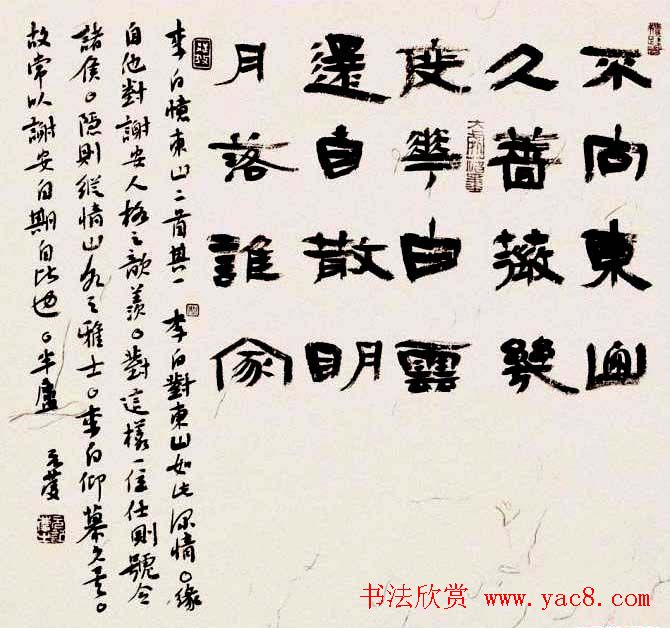 不向東山
久薔薇幾
度華白雲
還自散明
月落誰家
李白憶東山二首其一 李白對東山如此深情。緣
自他對謝安人格之歆羨。對這樣一位仕則號令
諸侯。隱則縱情山水之雅士。李白仰慕之至。
故常以謝安自期自比也。半廬
书法欣赏 www.yac8.com